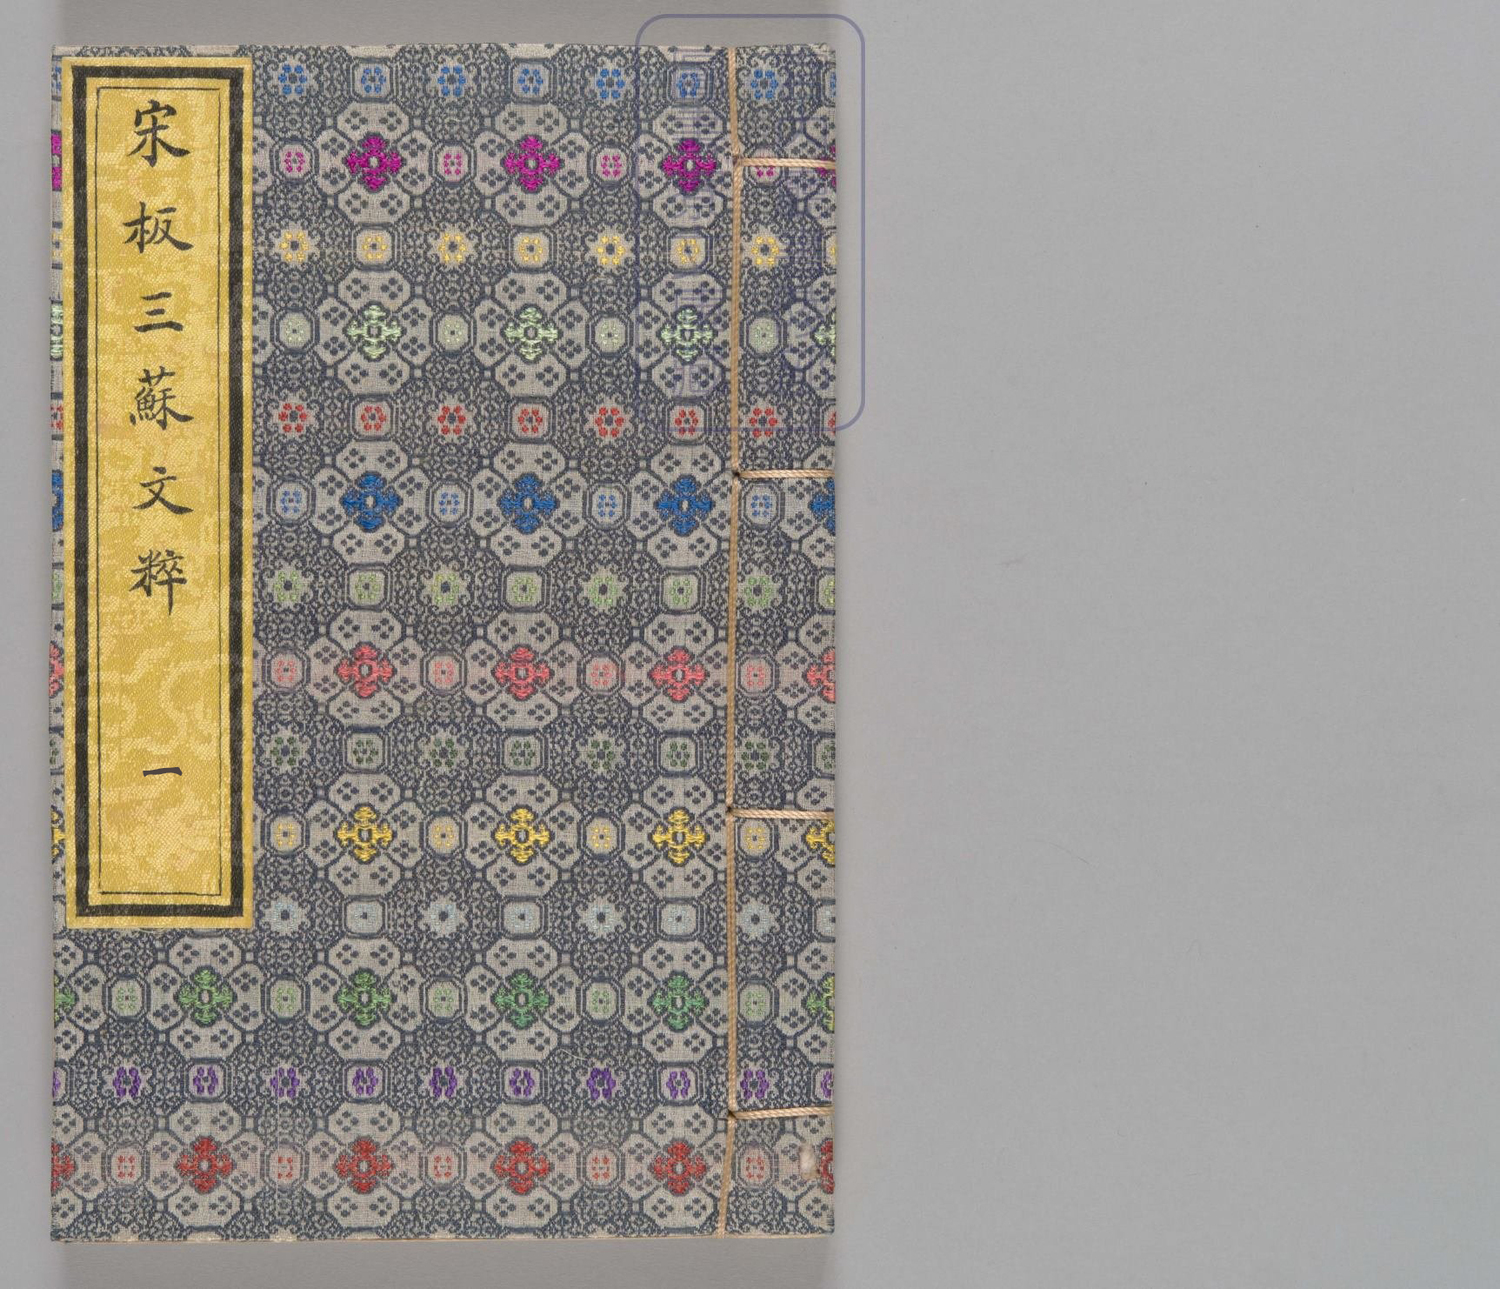 宋板三蘇文粹 一